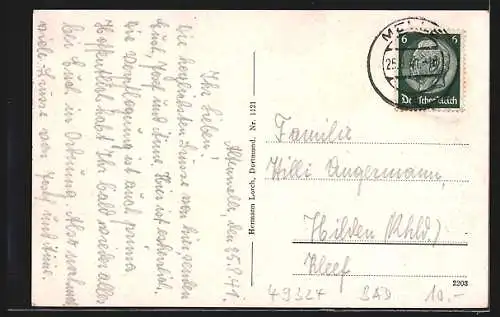 Altenmelle, den 25.8.41.
Ihr Lieben!
Die herzlichsten Grüsse von hier, senden
Euch, Josef und Änne. Hier ist es herrlich,
die Verpflegung ist auch prima.
Hoffentlich habt Ihr bald wieder alles
bei Euch in Ordnung. Also nochmals
viele Grüsse von Josef und Änne.
Hermann Lorch, Dortmund. Nr. 1121
MELLE
25.8.41
6 6
Deutsches Reich
Familie
Willi Angermann,
Hilden (Rhld.)
Kleef
2203
49324 BAD 10.-